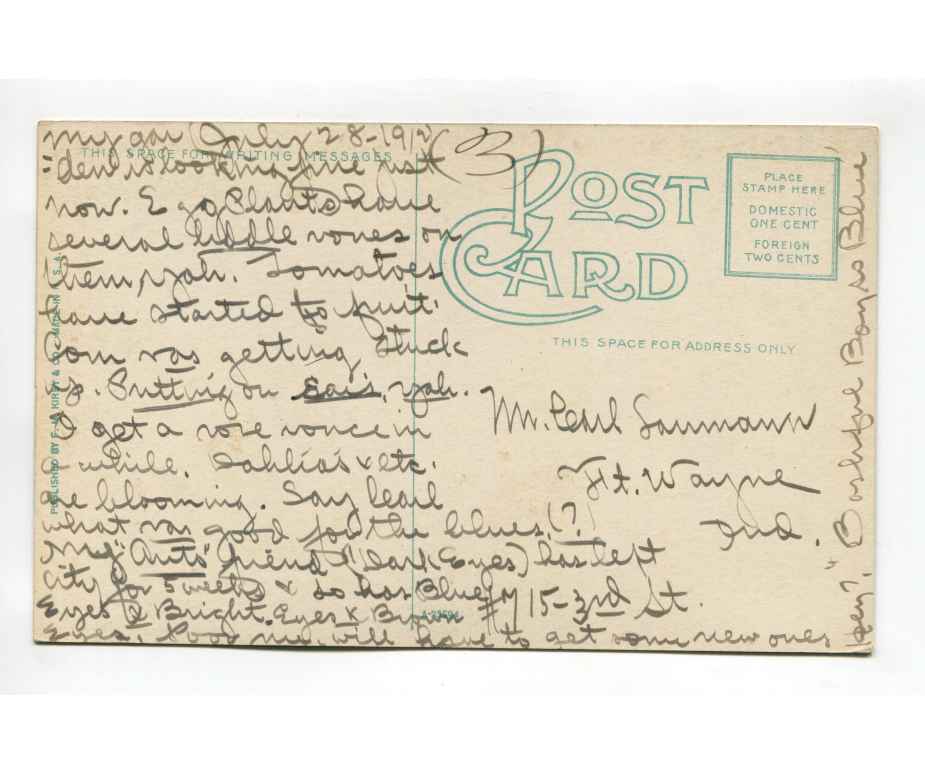 July 28-1912 (3)
THIS SPACE FOR WRITING MESSAGES
My gar
"den is looking fine just
now. Egg Plants have
several liddle vones on
them yah. Tomatoes
have started to fruit.
Corn vas getting stuck
up. Putting on Ears, yah.
I get a rose vonce in
a while. Dahlias & etc.
are blooming. Say Cearl
what vas good for the blues. (?)
My "Aunts" friend (Dark Eyes) has left
city for 5 weeks & so has Blue
Eyes & Bright Eyes & Brown
Eyes. Poor me will have to get some new ones
Hey? "Bashful Boy is Blue"
POST CARD
PLACE
STAMP HERE
DOMESTIC
ONE CENT
FOREIGN
TWO CENTS
THIS SPACE FOR ADDRESS ONLY
Mr. Cearl Saumann
Ft. Wayne
Ind.
#1715-3rd St.
PUBLISHED BY F. M. KIRBY & CO. MADE IN U.S.A.